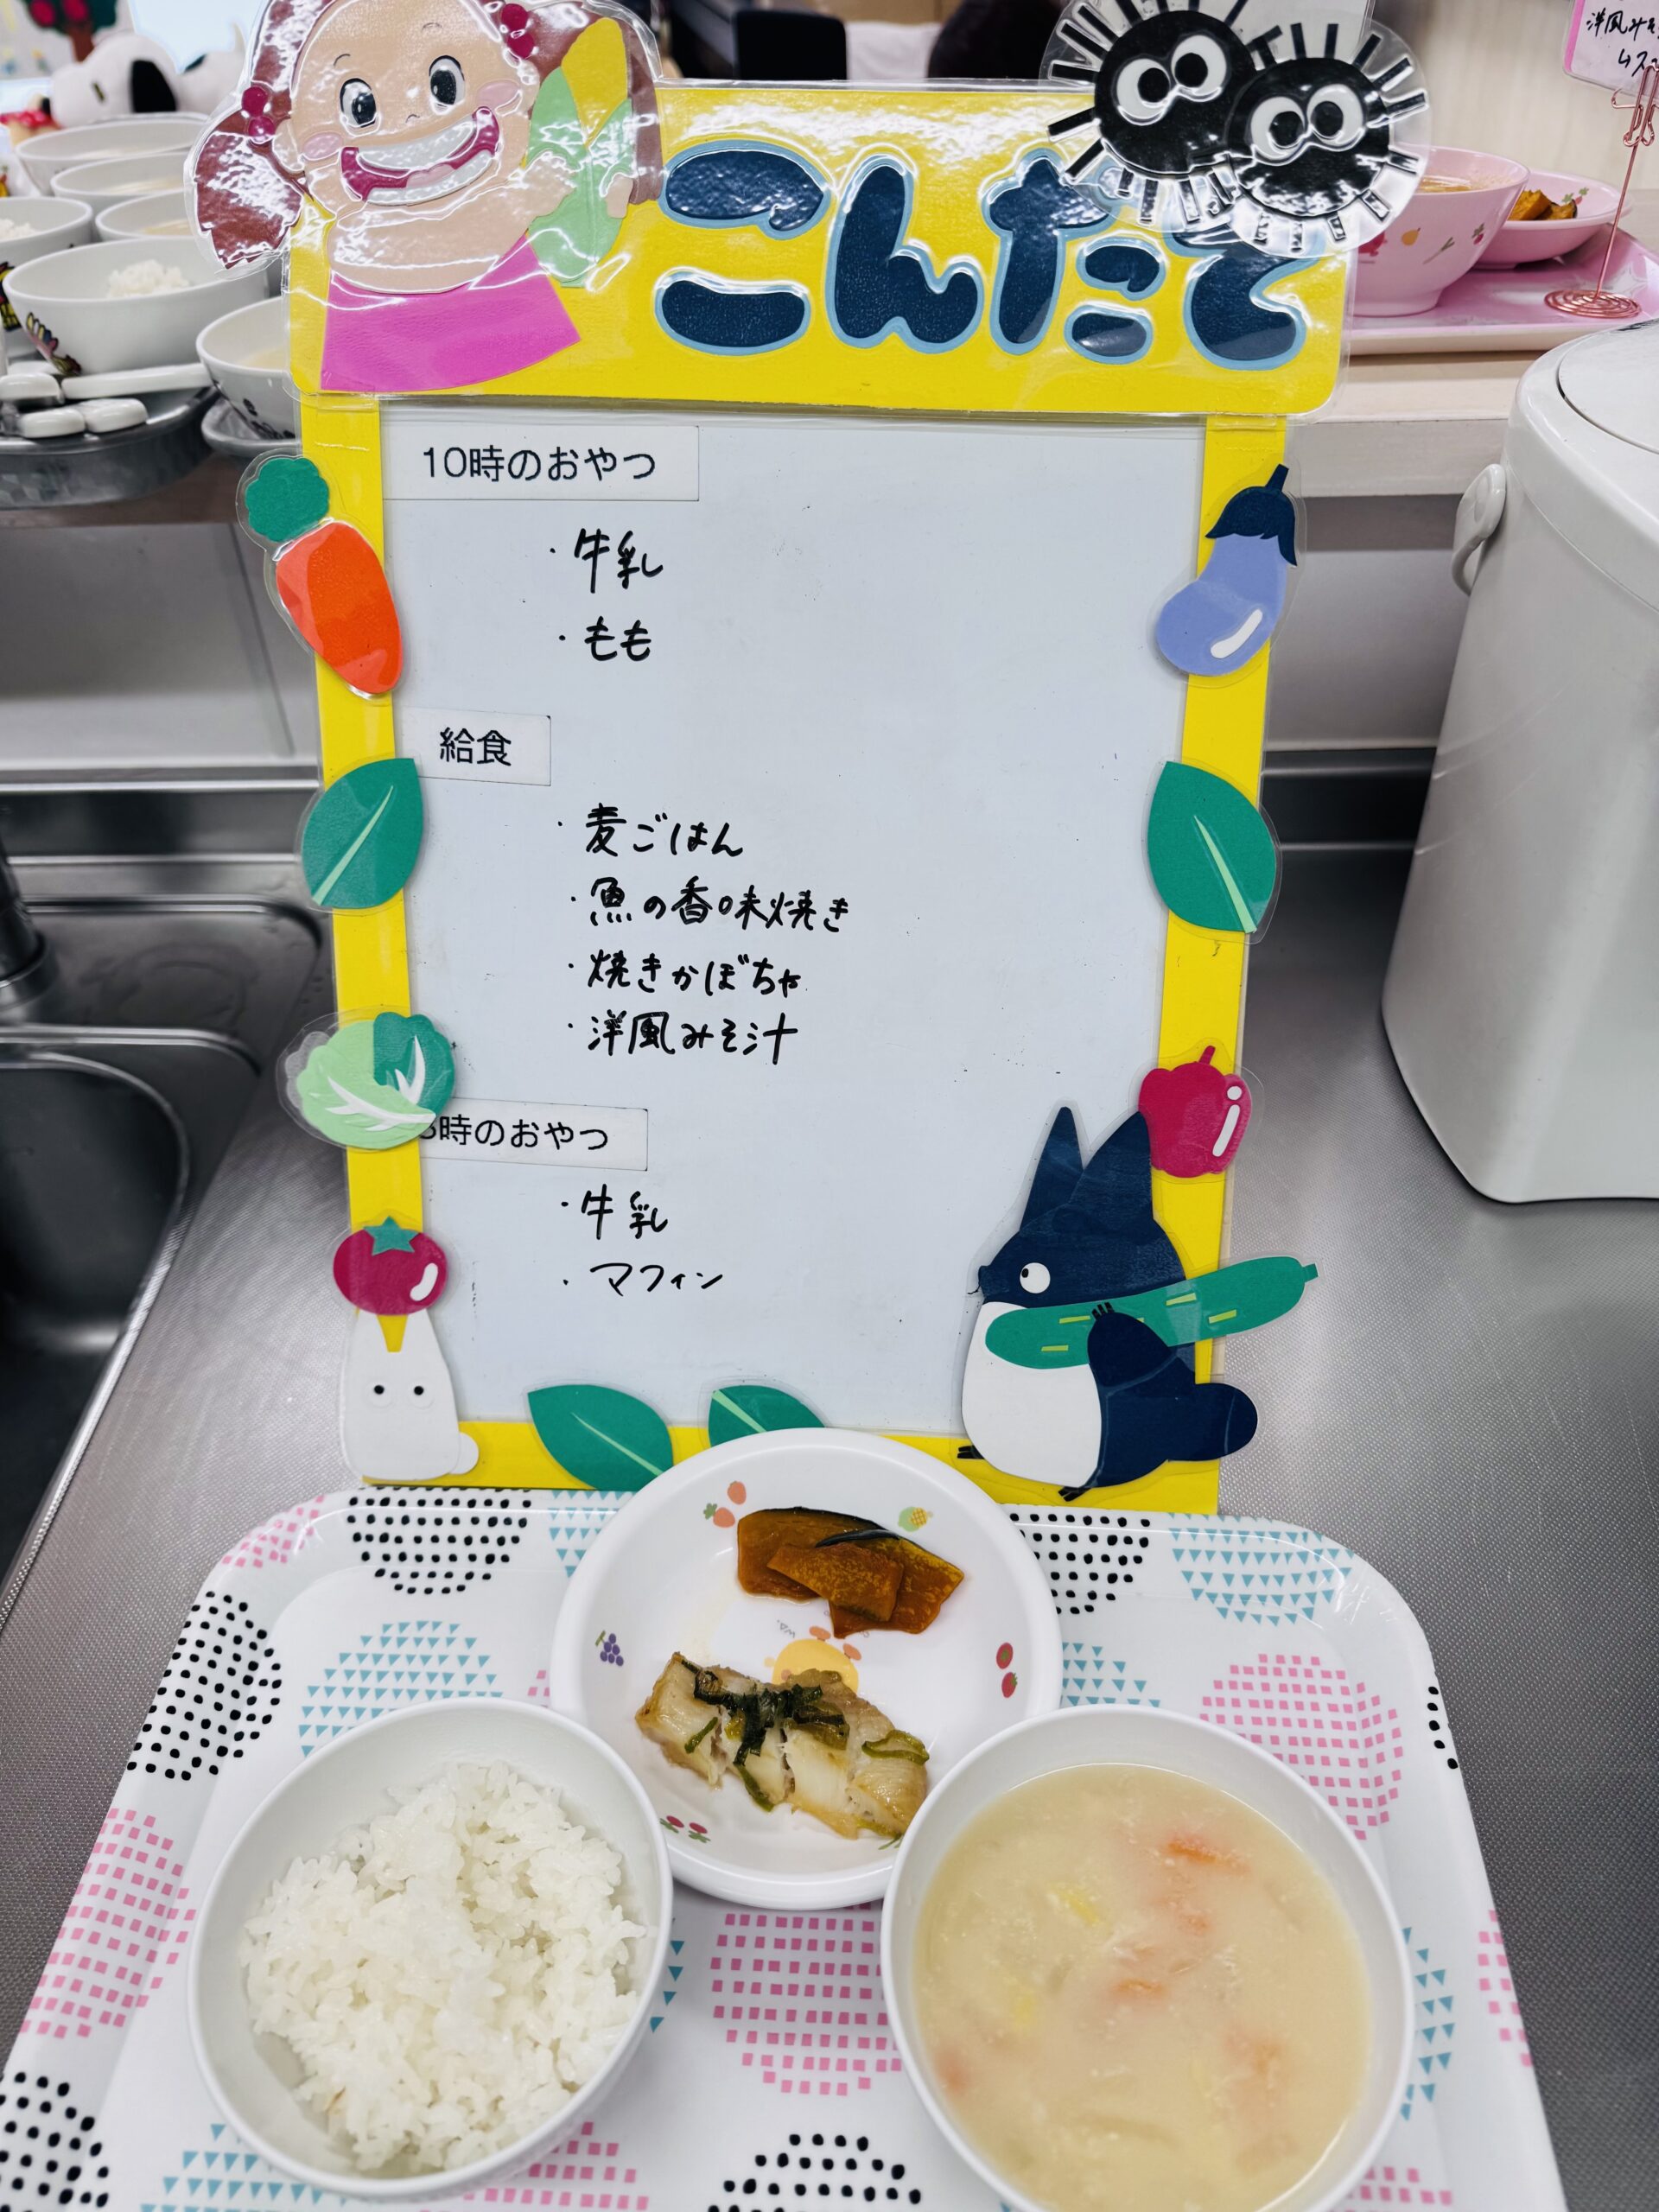 こんだて
10時のおやつ
・牛乳
・もも
給食
・麦ごはん
・魚の香味焼き
・焼きかぼちゃ
・洋風みそ汁
3時のおやつ
・牛乳
・マフィン